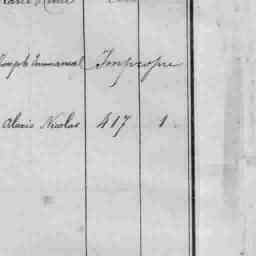 Joseph Emmanuel Impropre
Alexis Nicolas 417 1